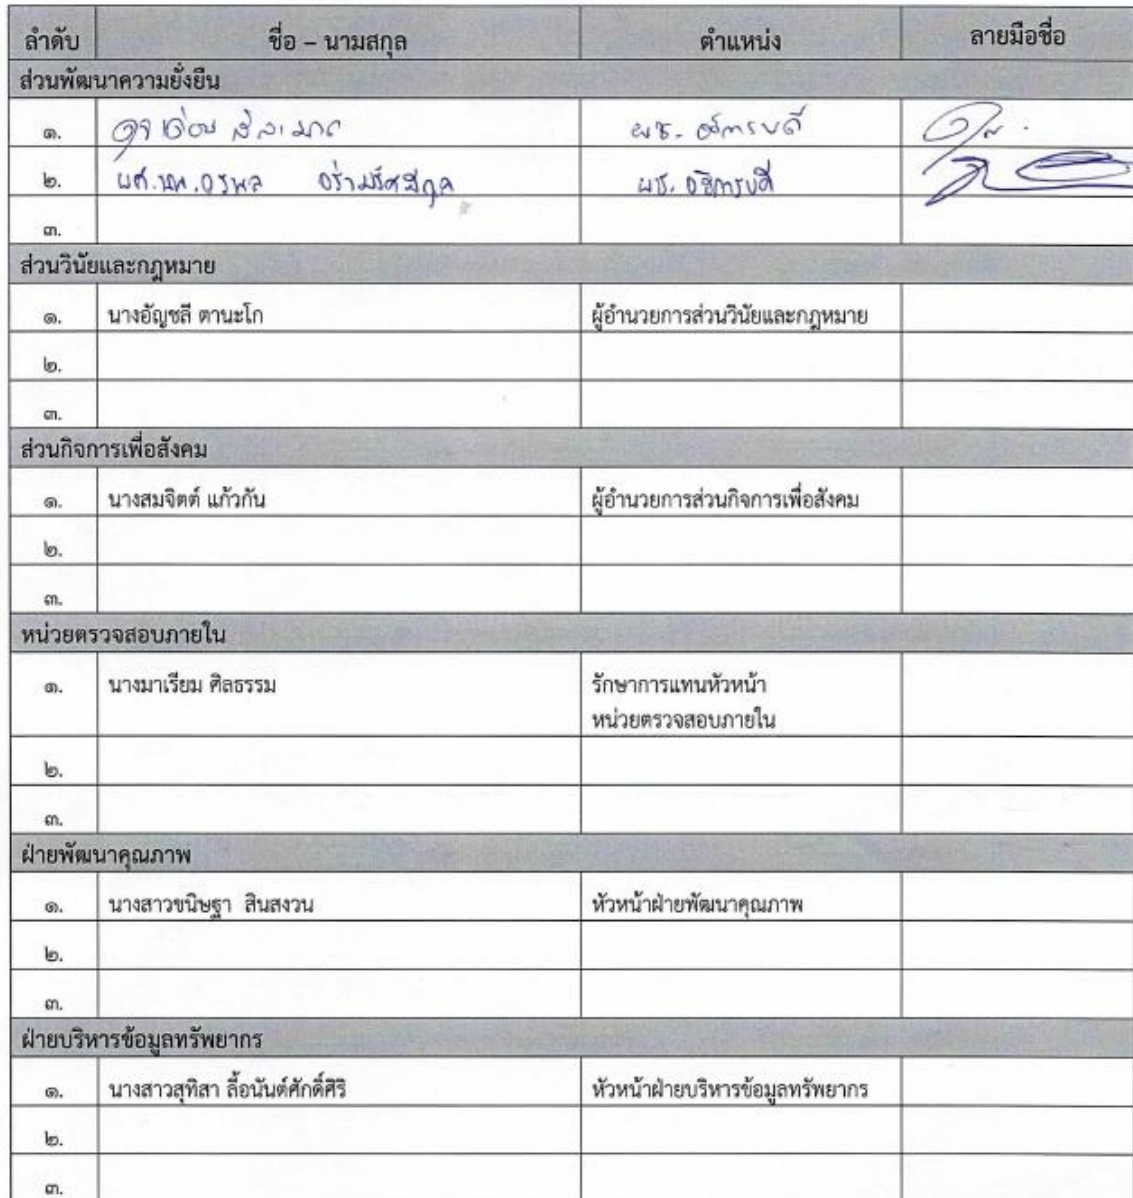 ลำดับ ชื่อ – นามสกุล ตำแหน่ง ลายมือชื่อ
ส่วนพัฒนาความยั่งยืน
๑. ผช. อธิการบดี
๒. ผศ.นพ. อธิการบดี ผช.
๓.
ส่วนวินัยและกฎหมาย
๑. นางอัญชลี ตานะโก ผู้อำนวยการส่วนวินัยและกฎหมาย
๒.
๓.
ส่วนกิจการเพื่อสังคม
๑. นางสมจิตต์ แก้วกัน ผู้อำนวยการส่วนกิจการเพื่อสังคม
๒.
๓.
หน่วยตรวจสอบภายใน
๑. นางมาเรียม ศิลธรรม รักษาการแทนหัวหน้า
หน่วยตรวจสอบภายใน
๒.
๓.
ฝ่ายพัฒนาคุณภาพ
๑. นางสาวขนิษฐา สินสงวน หัวหน้าฝ่ายพัฒนาคุณภาพ
๒.
๓.
ฝ่ายบริหารข้อมูลทรัพยากร
๑. นางสาวสุทิสา ลี้อนันต์ศักดิ์ศิริ หัวหน้าฝ่ายบริหารข้อมูลทรัพยากร
๒.
๓.